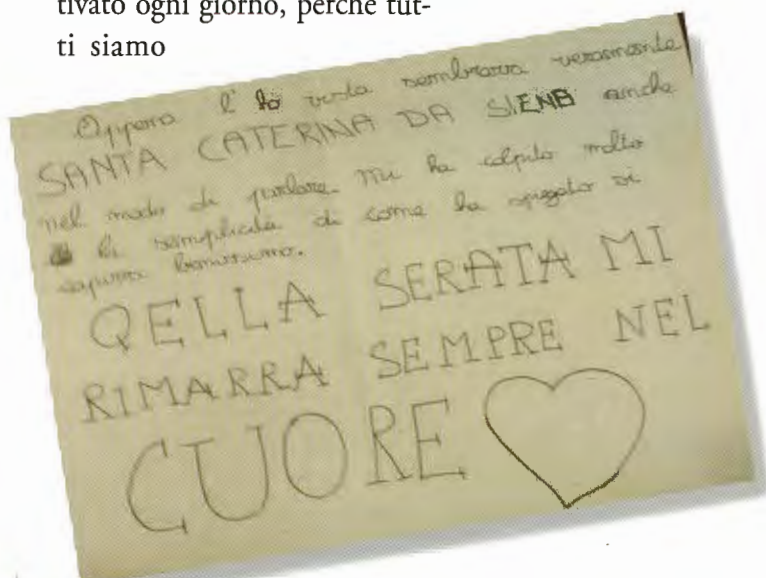 tivato ogni giorno, perché tut-
ti siamo
Appena l'ho vista sembrava veramente
SANTA CATERINA DA SIENA anche
nel modo di parlare. Mi ha colpito molto
la semplicità di come ha spiegato si
sapeva benissimo.
QELLA SERATA MI
RIMARRA SEMPRE NEL
CUORE